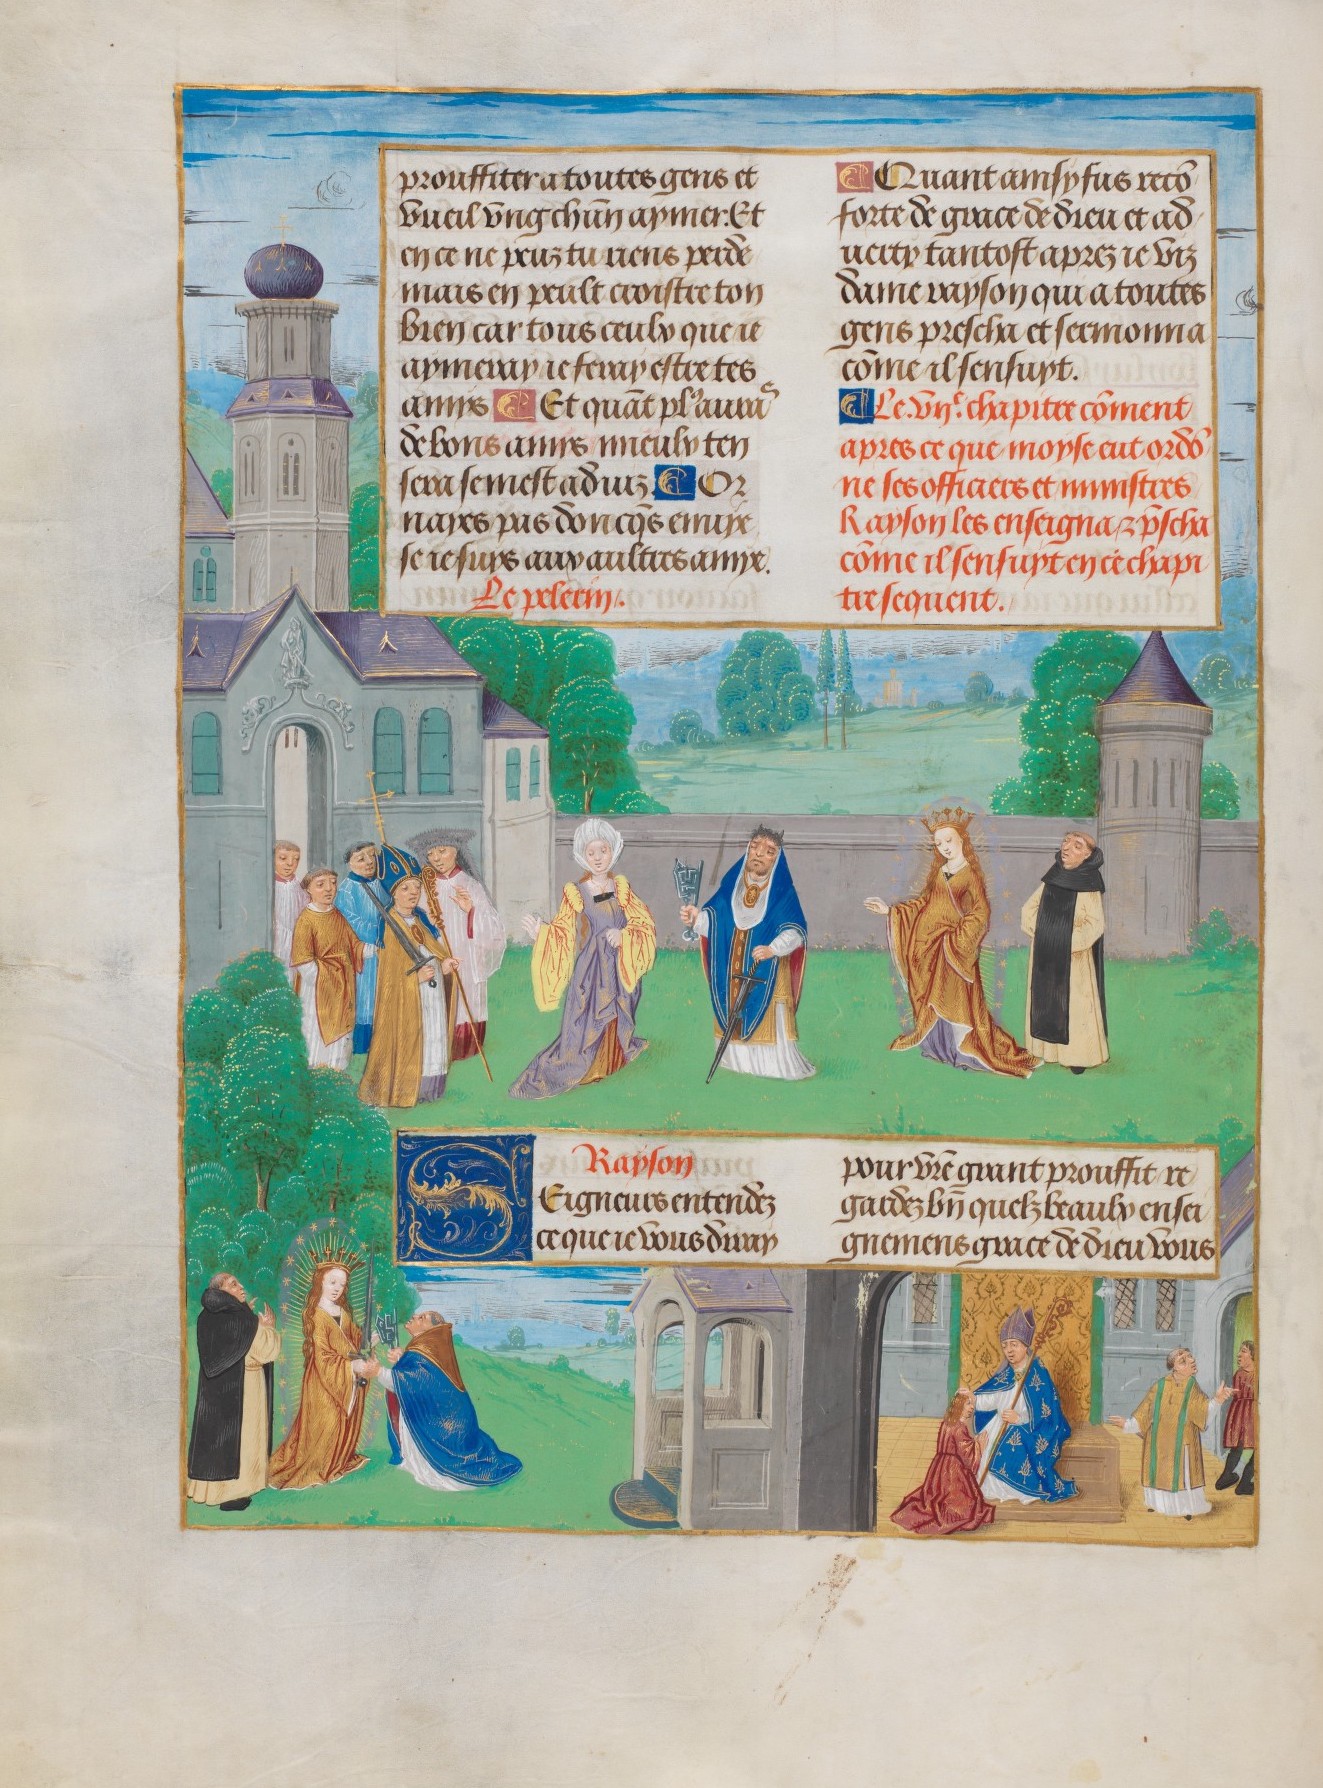 prouffiter a toutes gens et
vueil vng chũn aymer. Et
en ce ne peuz tu riens perdr̃e
mais en peult croistre ton
bien car tous ceulx que ie
aymeray ie feray estre tes
amys Et quãt pl9 aura9
de bons amys mieulx ten
sera se mest aduiz Or
nayes pas doncq̃s enuye
se ie suys aux aultres amye.
Le pelerin.
Quant amsy fus recõ
forte de grace de dieu et ad
uerty tantost aprez ie viz
dame rayson qui a toutes
gens prescha et sermonna
cõme il sensuyt.
Le vije chapitre cõment
apres ce que moyse eut ordõ
ne ses officiers et ministres
Rayson les enseigna ⁊ p̃scha
cõme il sensuyt en ce chapi
tre sequent.
Rayson
SEigneurs entendez
ce que ie vous diray
pour vr̃e grant prouffit re
gardez bñ quelz beaulx ensei
gnemens grace de dieu vous